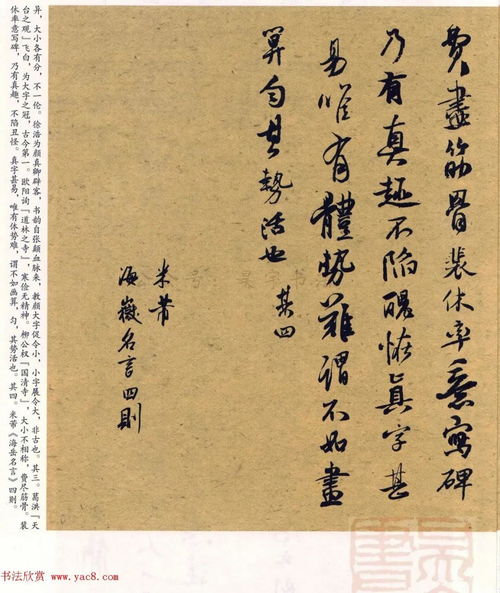 費盡筋骨裴休率意寫碑
乃有真趣不陷醜恠真字甚
易唯有體勢難謂不如畫
算勻其勢活也 其四
米芾
海嶽名言四則
异，大小各有分，不一伦。徐浩为颜真卿辟客，书韵自张颠血脉来，教颜大字促令小，小字展令大，非古也。其三。葛洪「天
台之观」飞白，为大字之冠，古今第一。欧阳询「道林之寺」，寒俭无精神。柳公权「国清寺」，大小不相称，费尽筋骨。裴
休率意写碑，乃有真趣，不陷丑怪。真字甚易，唯有体势难，谓不如画算，匀，其势活也。其四。米芾《海岳名言》四则。
书法欣赏 www.yac8.com